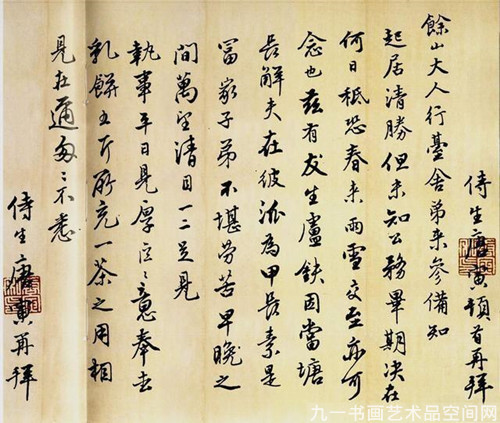 侍生唐寅頓首再拜
餘山大人行臺舍弟來參備知
起居清勝但未知公務畢期決在
何日秖恐春來雨雪交至亦可
念也茲有友生盧鉄因當塘
長解夫在彼派為甲長素是
富家子弟不堪勞苦早晚之
間萬望清目一二足見
執事平日見厚之意奉去
乳餅五斤充一茶之用相
見在邇匆〻不悉
侍生唐寅再拜
九一书画艺术品空间网